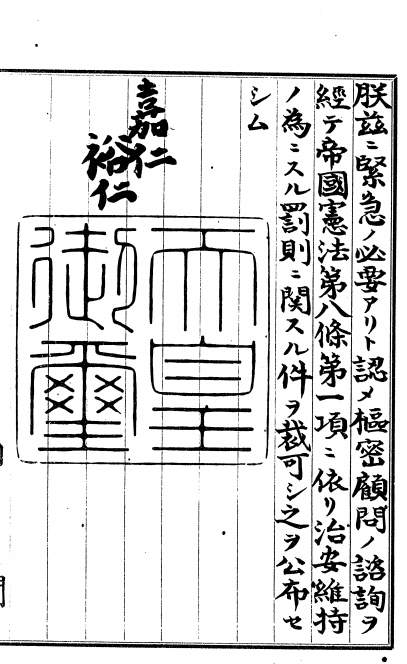 朕茲ニ緊急ノ必要アリト認メ樞密顧問ノ諮詢ヲ
經テ帝國憲法第八條第一項ニ依リ治安維持
ノ為ニスル罰則ニ関スル件ヲ裁可シ之ヲ公布セ
シム
嘉仁
裕仁
天皇
御璽